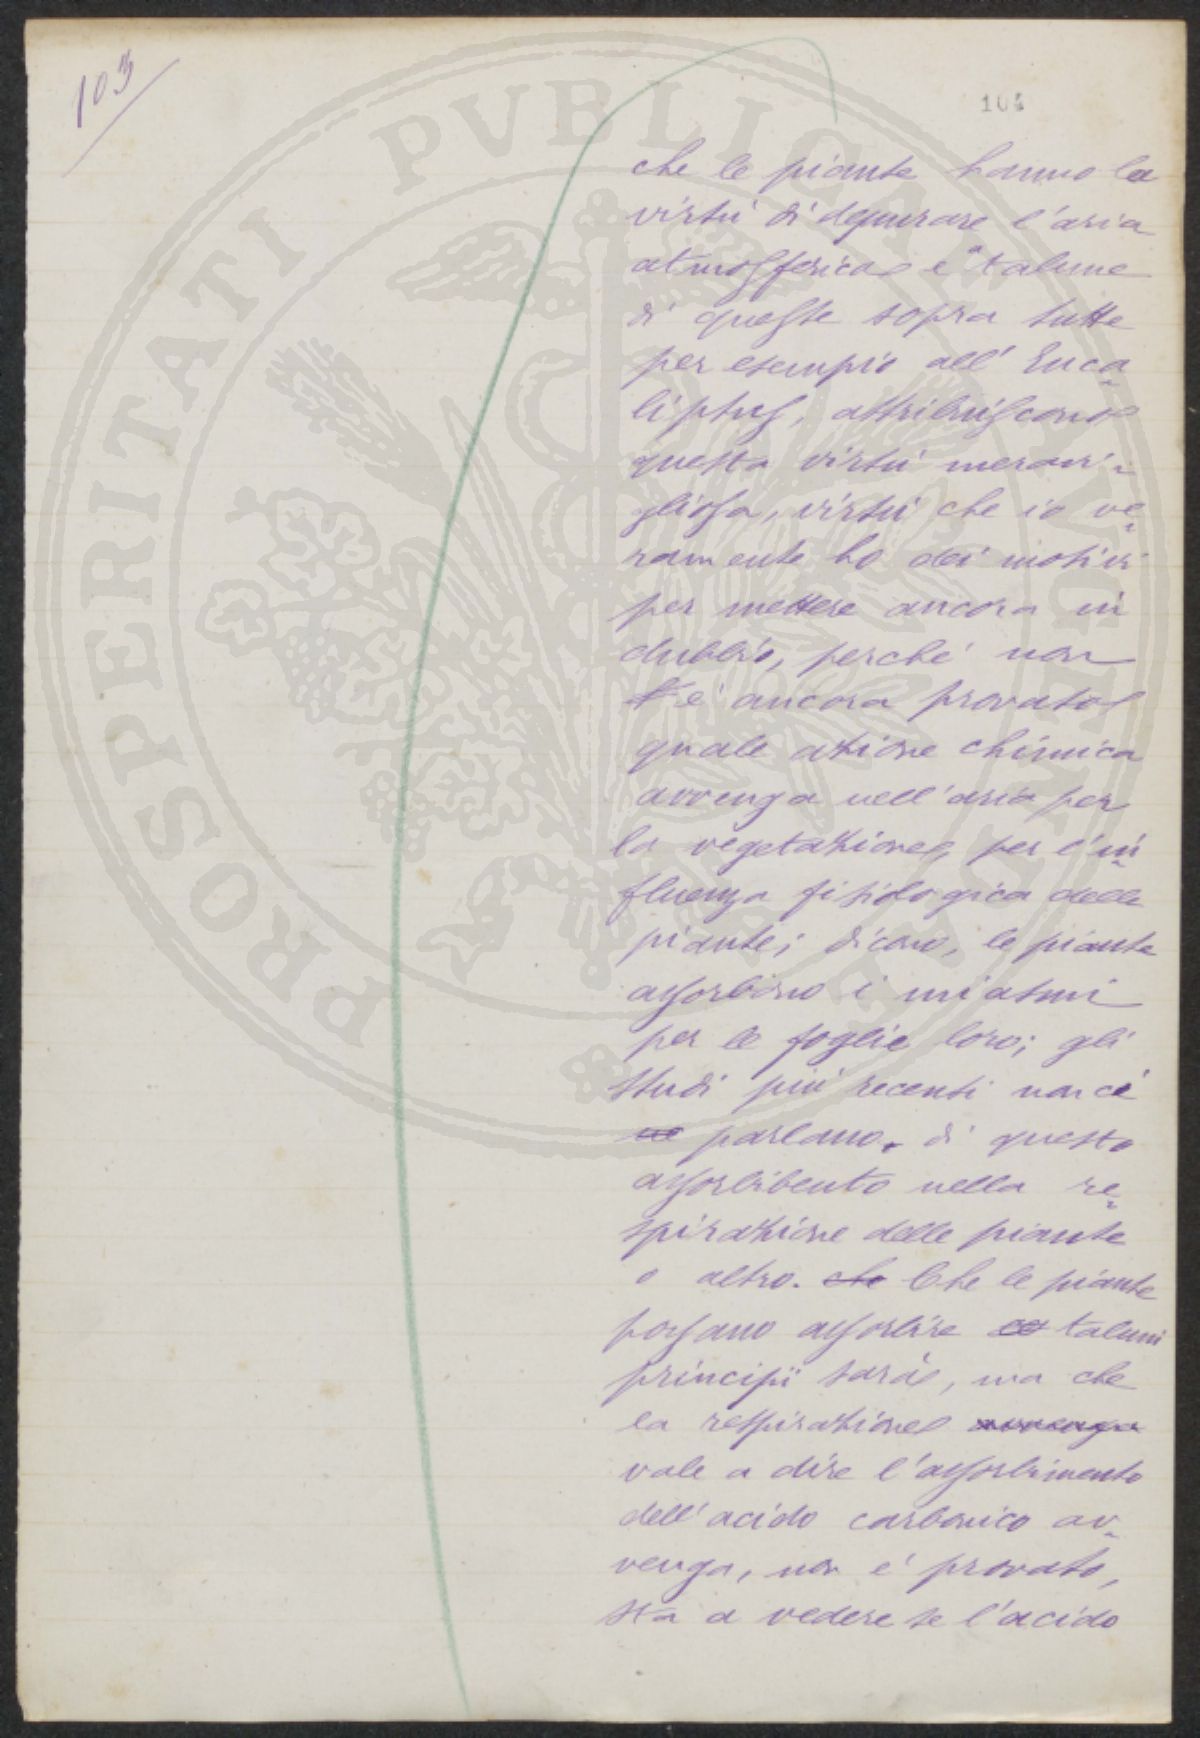 103
104
che le piante hanno la
virtù di depurare l'aria
atmosferica e a talune
di queste sopra tutte
per esempio all' Euca=
liptus, attribuiscono
questa virtù meravi=
gliosa, virtù che io ve=
ramente ho dei motivi
per mettere ancora in
dubbio, perché non
è ancora provato
quale azione chimica
avvenga nell'aria per
la vegetazione, per l'in=
fluenza fisiologica delle
piante; dicono, le piante
assorbono i miasmi
per le foglie loro; gli
studi più recenti non ci
ne parlano. di questo
assorbibento nella re=
spirazione delle piante
o altro. che Che le piante
possano assorbire taluni
principii sarà, ma che
la respirazione avvenga
vale a dire l'assorbimento
dell'acido carbonico av=
venga, non è provato,
sta a vedere se l'acido
PROSPERITATI PVBLICAE